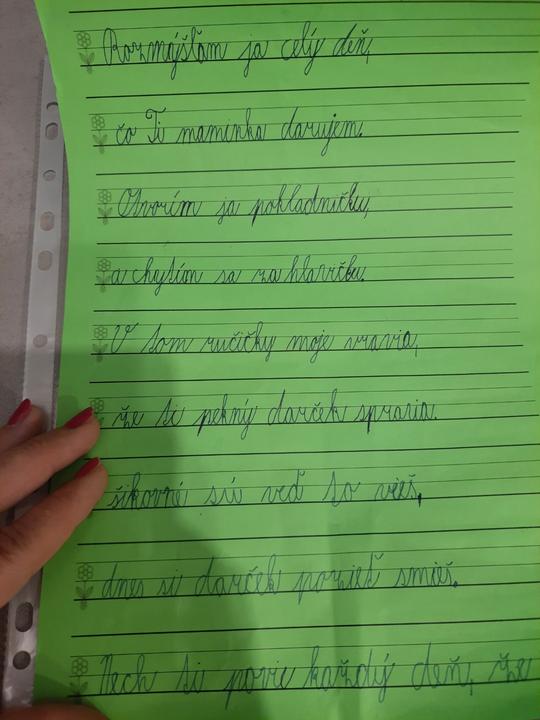 Rozmýšlam ja celý deň,
čo Ti maminka darujem.
Otvorím ja pokladničku,
a chytím sa za hlavičku.
V tom ručičky moje vravia,
že ti pekný darček spravia.
šikovné sú veď to vieš,
dnes si darček pozrieť smieš.
Nech ti povie každý deň, že